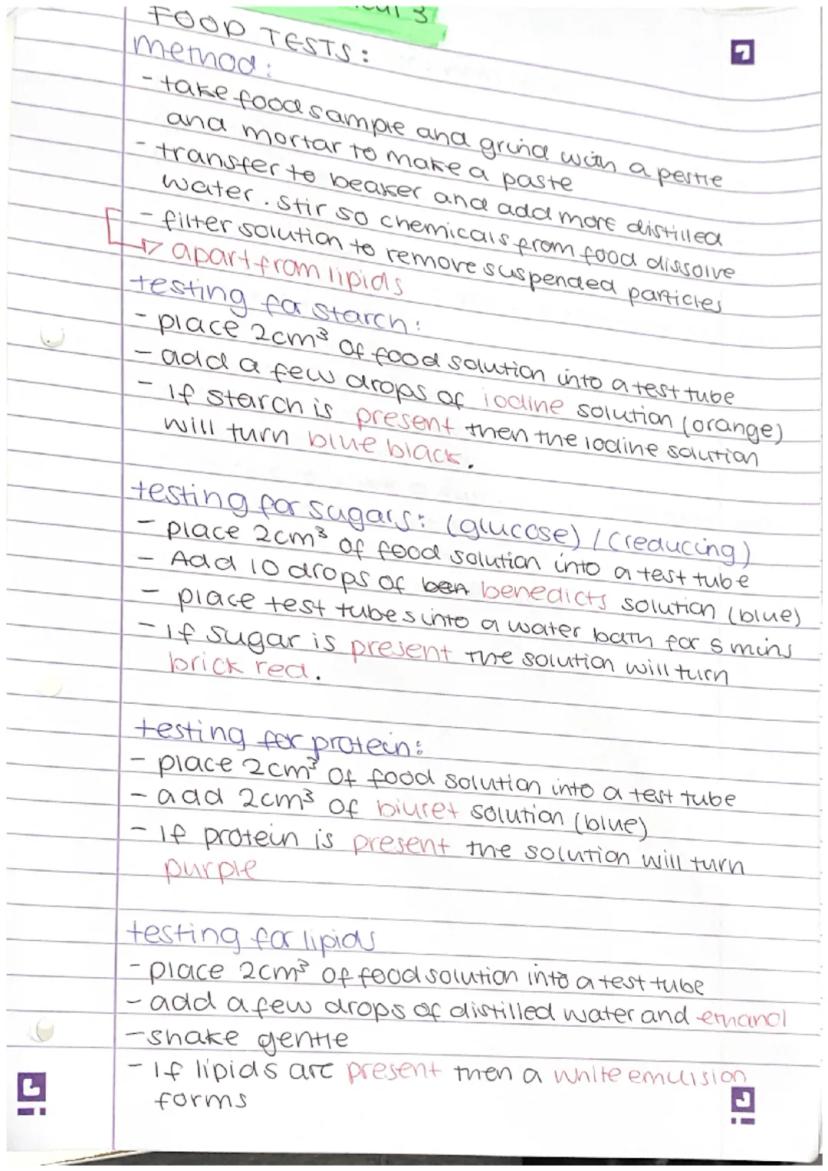 3
FOOD TESTS:
method:
- take food sample and grind with a pestle
and mortar to make a paste
- transfer to beaker and add more distilled
water. stir so chemicals from food dissolve
- filter solution to remove suspended particles
apart from lipids
testing for starch:
- place 2cm³ of food solution into a test tube
- add a few drops of iodine solution (orange)
- If starch is present then the iodine solution
will turn blue black.
testing for sugars: (glucose) / (reducing)
- place 2cm³ of food solution into a test tube
- Add 10 drops of benedicts solution (blue)
- place test tubes into a water bath for 5 mins
- If sugar is present the solution will turn
brick red.
testing for protein:
- place 2cm³ of food solution into a test tube
- add 2cm³ of biuret solution (blue)
- If protein is present the solution will turn
purple
testing for lipids
- place 2cm³ of food solution into a test tube
- add a few drops of distilled water and ethanol
- shake gentle
- If lipids are present then a white emulsion
forms